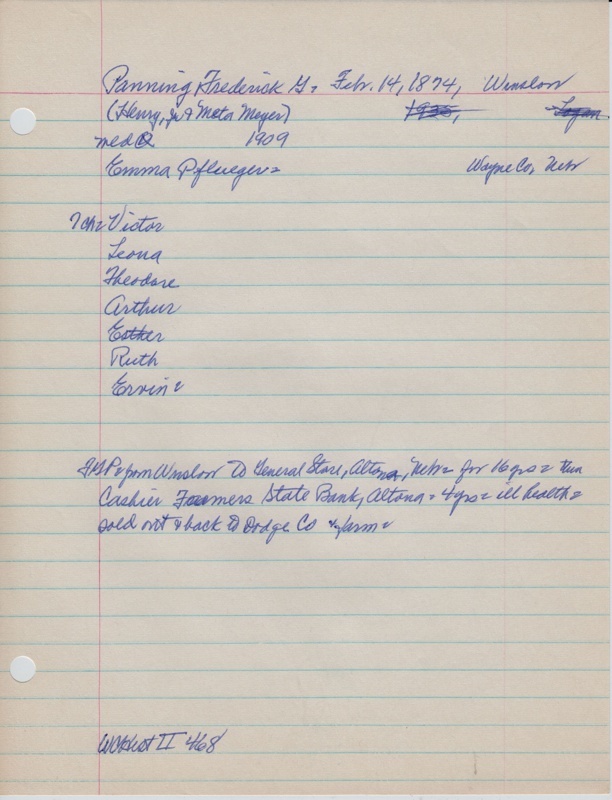 Panning Frederick G. Feb. 14, 1874, Winslow
(Henry, Jr & Meta Meyer) 1935, Logan
med 1909
Emma Pflueger= Wayne Co, Nebr
7 ch= Victor
Leona
Theodore
Arthur
Esther
Ruth
Ervin=
FGP from Winslow to General Store, Altona, Nebr= for 16 yrs= then
Cashier Farmers State Bank, Altona= 4 yrs= ill health=
sold out & back to Dodge Co farm=
Hist II 468